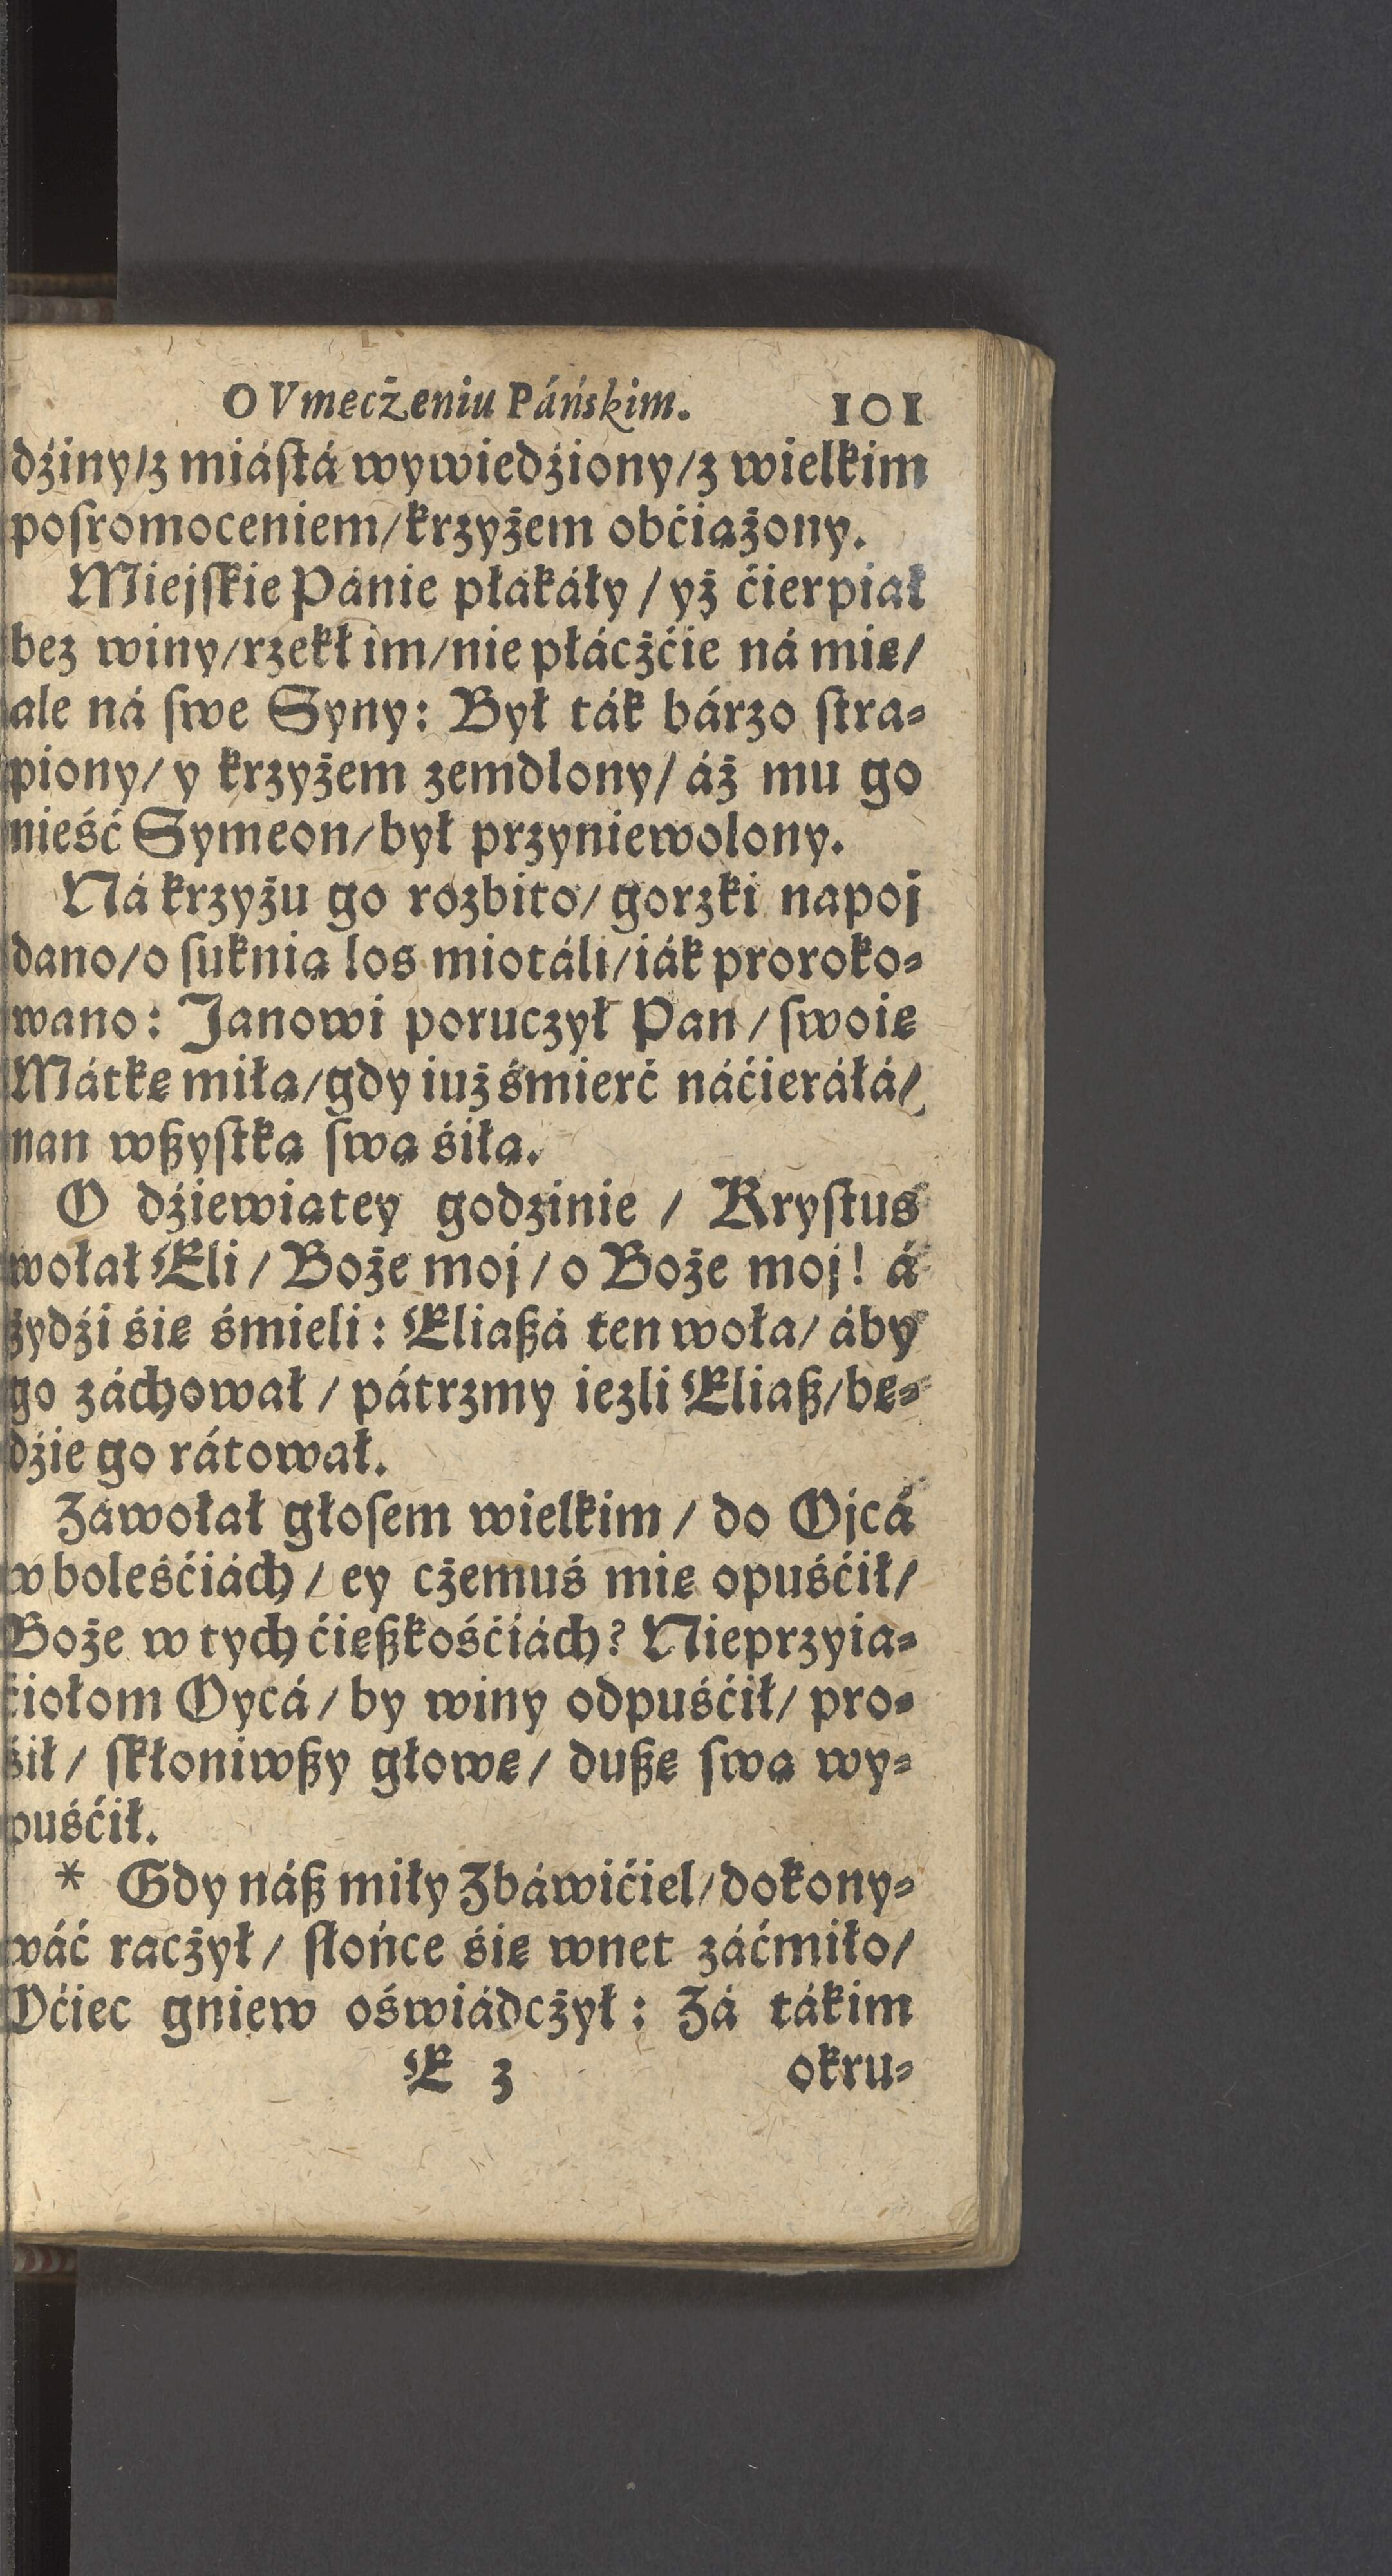 O Vmęcżeniu Páńskim. 101
dźiny/z miáſtá wywiedźiony/z wielkim
poſromoceniem/krzyżem obćiążony.
Miejſkie Pánie płákáły / yż ćierpiał
bez winy/rzekł im/nie płácżćie ná mię/
ale ná ſwe Syny: Był ták bárzo ſtra⸗
piony/ y krzyżem zemdlony/ áż mu go
nieść Symeon/był przyniewolony.
Ná krzyżu go rozbito/ gorzki napoj
dano/o ſuknią los miotáli/iák proroko⸗
wano: Janowi poruczył Pan / ſwoię
Mátkę miłą/gdy iuż śmierć náćieráłá/
nan wßyſtką ſwą śiłą.
O dźiewiątey godzinie / Kryſtus
wołał Eli / Boże moj / o Boże moj! á
żydźi śię śmieli: Eliaßá ten woła/ áby
go záchował / pátrzmy iezli Eliaß/bę⸗
dźie go rátował.
Záwołał głoſem wielkim / do Ojcá
w boleśćiách / ey cżemuś mię opuśćił/
Boże w tych ćięßkośćiách? Nieprzyia⸗
ćiołom Oycá / by winy odpuśćił/ pro⸗
śił/ ſkłoniwßy głowę/ dußę ſwą wy⸗
puśćił.
* Gdy náß miły Zbáwićiel/dokony⸗
wáć racżył/ ſłońce śię wnet záćmiło/
Oćiec gniew oświádcżył: Zá tákim
E 3 okru⸗